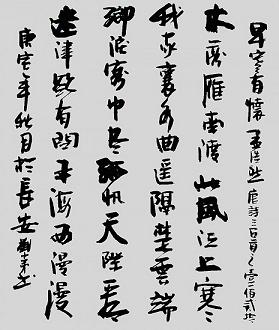 早寒有懷 孟浩然 唐詩三百首之壹佰貳拾
木落雁南渡北風江上寒
我家襄水曲遥隔楚雲端
鄉泪客中尽孤帆天際看
迷津欲有問平海夕漫漫
庚寅年秋月於長安